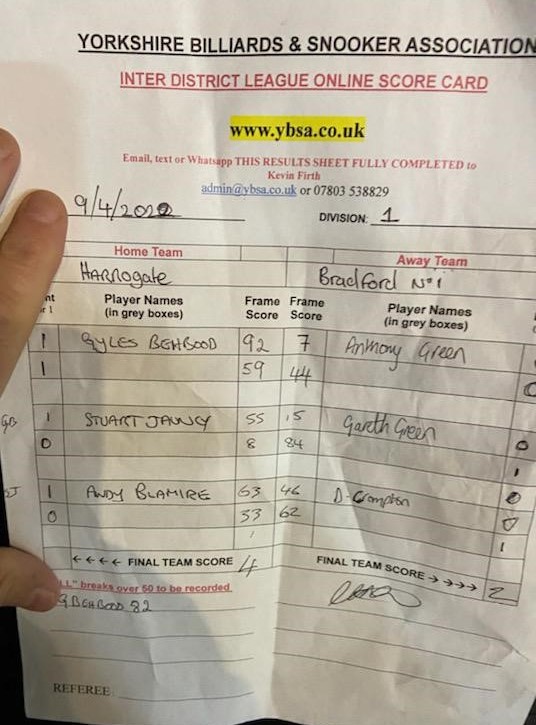 YORKSHIRE BILLIARDS & SNOOKER ASSOCIATION
INTER DISTRICT LEAGUE ONLINE SCORE CARD
www.ybsa.co.uk
Email, text or Whatsapp THIS RESULTS SHEET FULLY COMPLETED to
Kevin Firth
admin@ybsa.co.uk or 07803 538829
9/4/2022 DIVISION: 1
Home Team Away Team
HARROGATE Bradford No 1
Player Names (in grey boxes) Frame Score Frame Score Player Names (in grey boxes)
1 GYLES BEHBOOD 92 7 Anthony Green
1 59 44 0
1 STUART JAUNCY 55 15 Gareth Green 0
0 8 84 1
1 ANDY BLAMIRE 63 46 D. Crompton 0
0 33 62 1
←←←← FINAL TEAM SCORE 4 FINAL TEAM SCORE →→→→ 2
LL" breaks over 50 to be recorded
G BEHBOOD 82
REFEREE